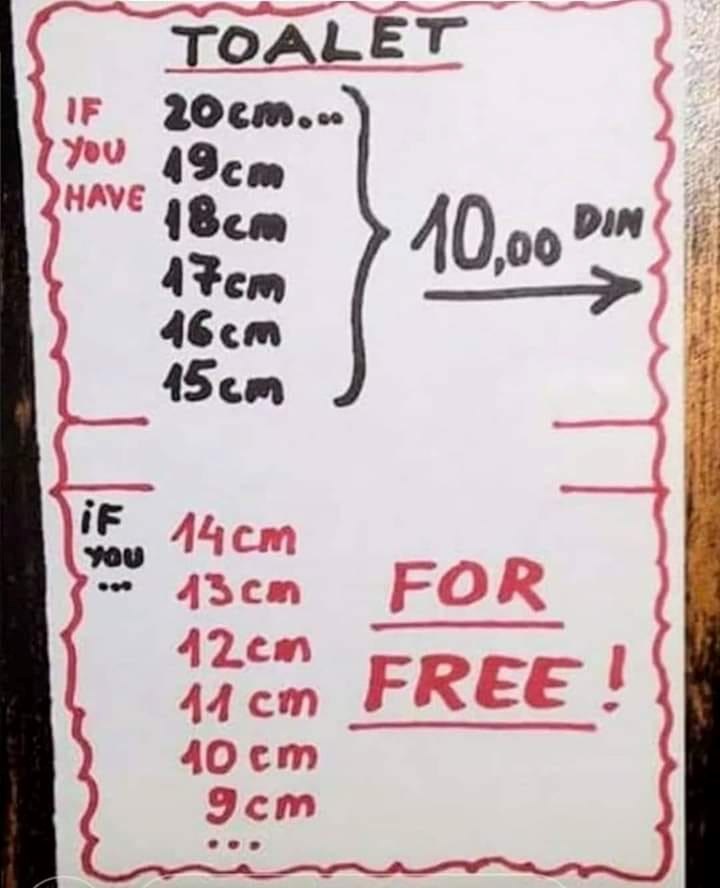 TOALET
IF
YOU
HAVE
20cm...
19cm
18cm
17cm
16cm
15cm
10,00 DIN
iF
YOU
...
14cm
13cm
12cm
11cm
10cm
9cm
...
FOR
FREE!